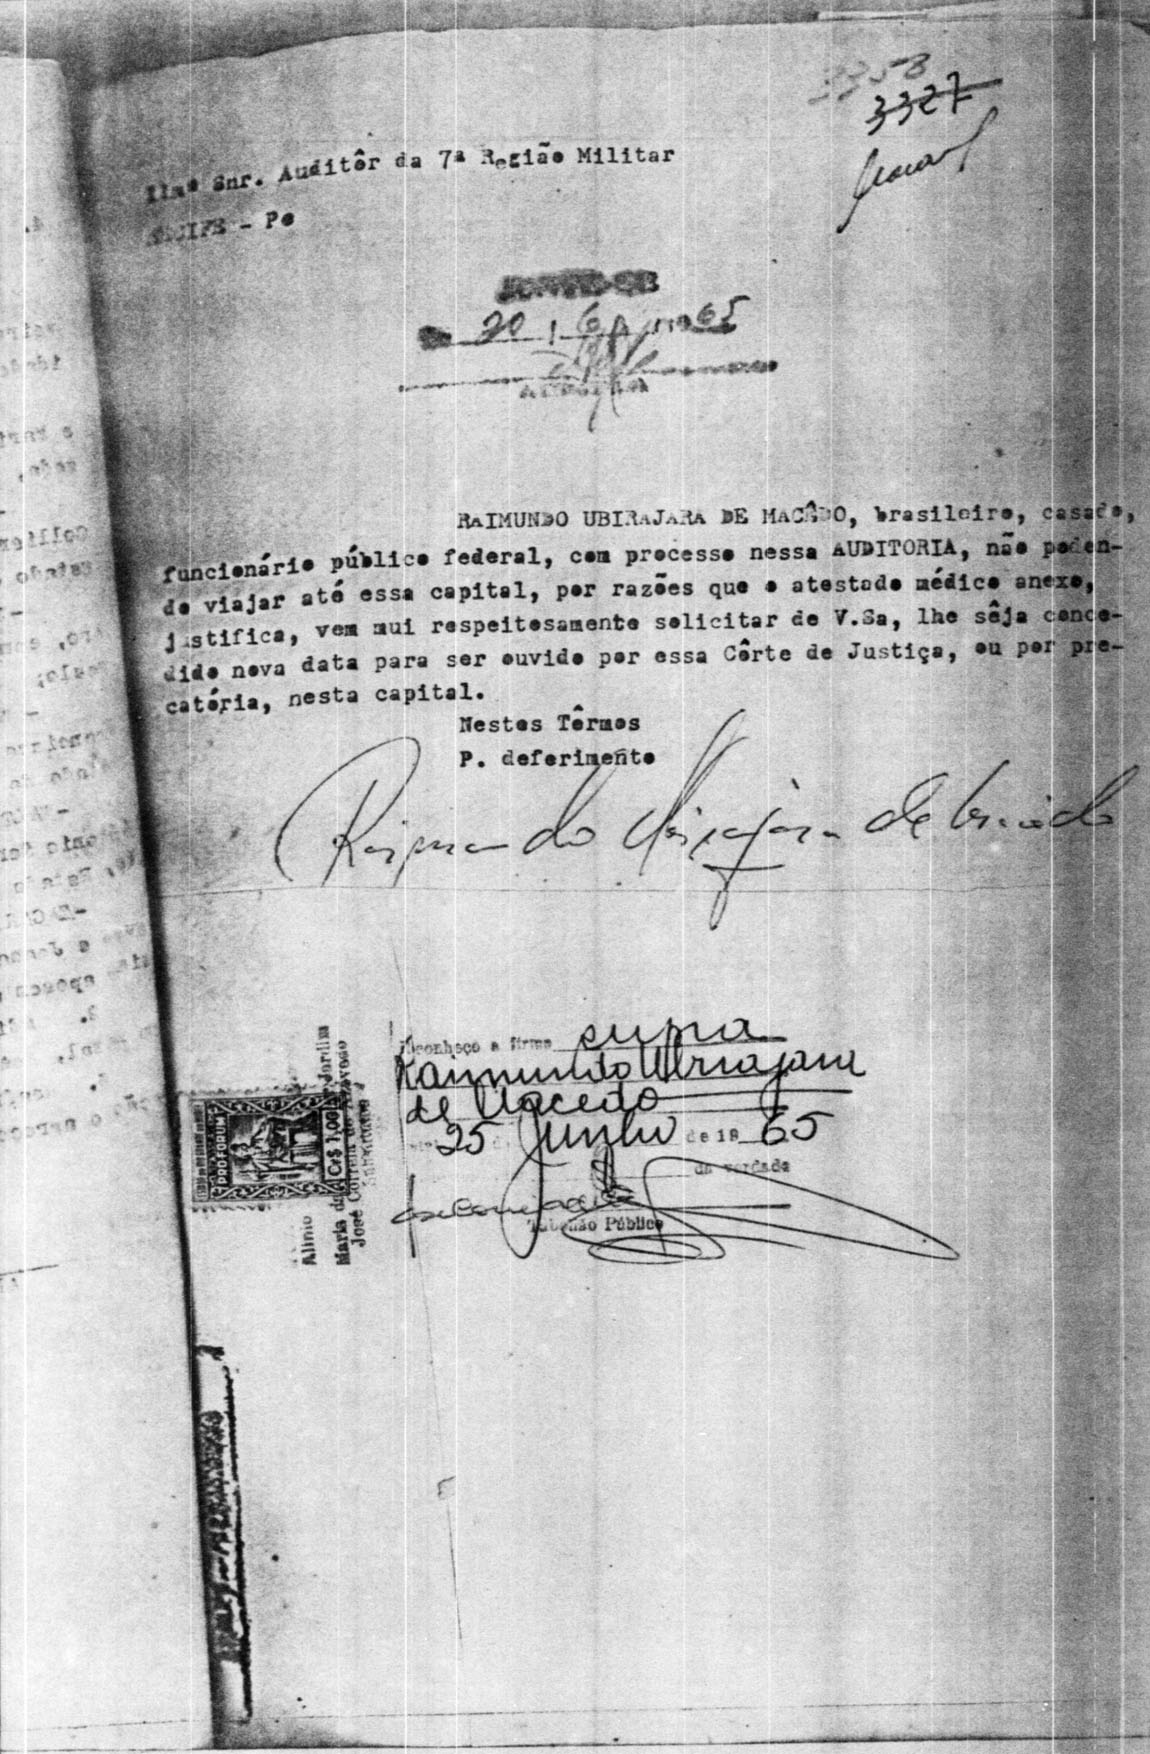 3358
3327
Ilmº Snr. Auditôr da 7ª Região Militar
RECIFE - Pe
JUNTE-SE
20 / 6 / 1965
AUDITOR
RAIMUNDO UBIRAJARA DE MACÊDO, brasileiro, casado,
funcionário público federal, com processo nessa AUDITORIA, não poden-
do viajar até essa capital, por razões que o atestado médico anexo,
justifica, vem mui respeitosamente solicitar de V.Sa, lhe sêja conce-
dido nova data para ser ouvido por essa Côrte de Justiça, ou por pre-
catória, nesta capital.
Nestes Têrmos
P. deferimento
Raimundo Ubirajara de Macêdo
Reconheço a firma supra
Raimundo Ubirajara
de Macedo
25 Junho de 19 65
da verdade
Tabelião Público
PROFORUM
Cr$ 1,00
Maria da Jardim
José Correia de Azevedo